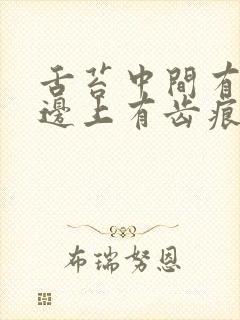 舌苔中間有
邊上有齿痕
布瑞努恩